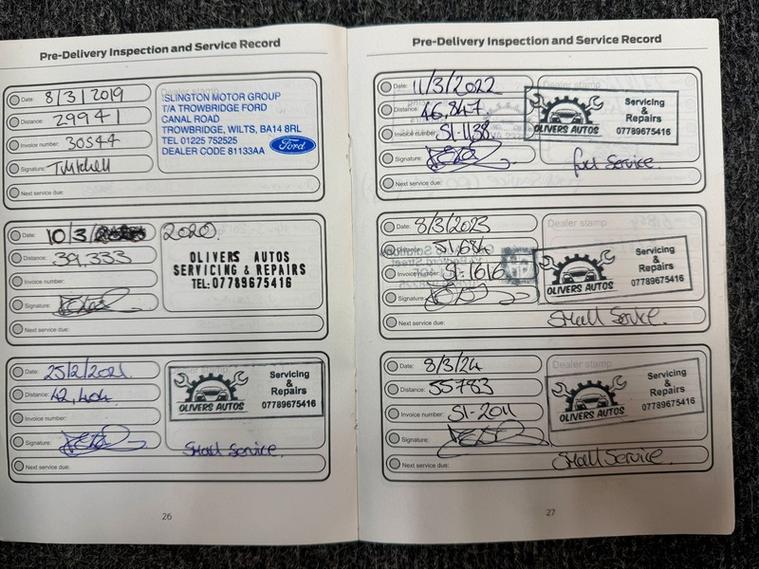 Pre-Delivery Inspection and Service Record
Date: 8/3/2019
Distance: 29941
Invoice number: 30544
Signature: T.Mitchell
Next service due:
Dealer stamp
ISLINGTON MOTOR GROUP
T/A TROWBRIDGE FORD
CANAL ROAD
TROWBRIDGE, WILTS, BA14 8RL
TEL 01225 752525
DEALER CODE 81133AA
Ford
Date: 10/3/ 2020
Distance: 39,333
Invoice number:
Signature:
Next service due:
OLIVERS AUTOS
SERVICING & REPAIRS
TEL:07789675416
Date: 25/2/2021
Distance: 42,404
Invoice number:
Signature:
Next service due:
OLIVERS AUTOS
Servicing
&
Repairs
07789675416
Small Service.
26
Pre-Delivery Inspection and Service Record
Date: 11/3/2022
Distance: 46,847
Invoice number: SI-1138
Signature:
Next service due:
Dealer stamp
OLIVERS AUTOS
Servicing
&
Repairs
07789675416
full Service.
Date: 8/3/2023
Distance: 51,684
Invoice number: SI-1616
Signature:
Next service due:
Dealer stamp
OLIVERS AUTOS
Servicing
&
Repairs
07789675416
Small Service.
Date: 8/3/24
Distance: 55783
Invoice number: SI-2011
Signature:
Next service due:
Dealer stamp
OLIVERS AUTOS
Servicing
&
Repairs
07789675416
Small Service.
27